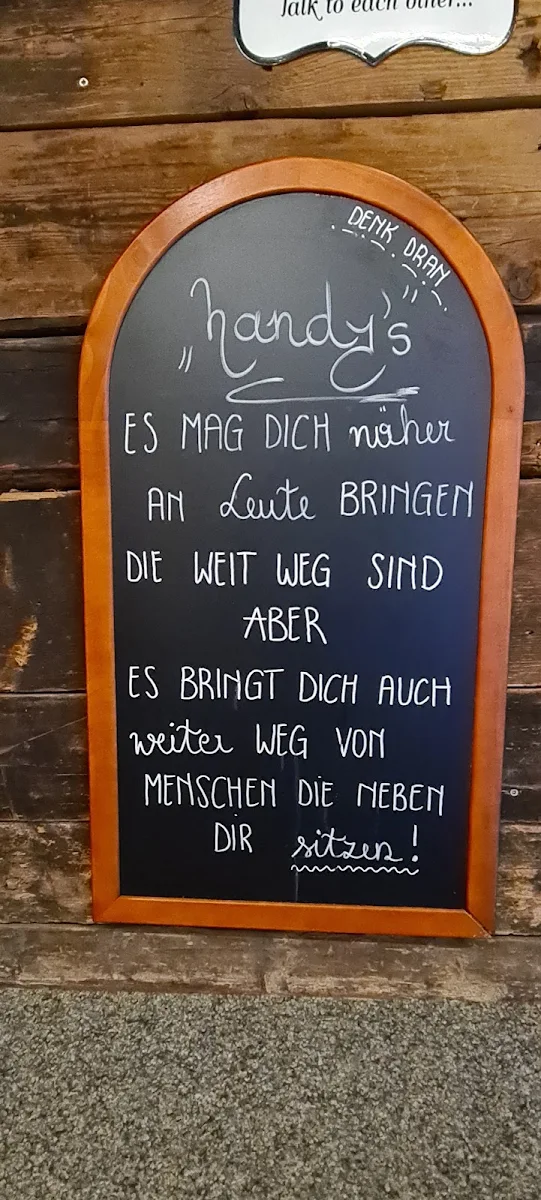 Talk to each other...
DENK DRAN
„handy's"
ES MAG DICH näher
AN Leute BRINGEN
DIE WEIT WEG SIND
ABER
ES BRINGT DICH AUCH
weiter WEG VON
MENSCHEN DIE NEBEN
DIR sitzen!